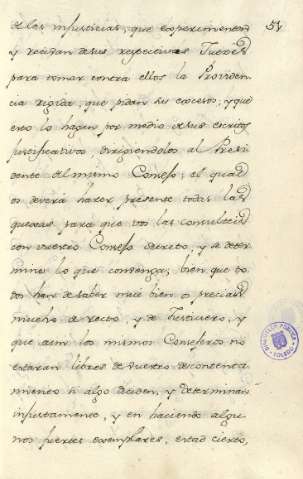 51
de las injusticias, que experimentan
y reciban de sus respectivos Jueces
para tomar contra ellos la Providen
cia rigida, que pidan sus excesos, y que
esto lo hagan por medio de sus escritos
justificativos, dirigiendolos al Presi
dente del mismo Consejo; el qual
os deverá hacer presente todas las
quexas, para que vos las consulteis
con vuestro Consejo Secreto, y se deter
mine lo que convenga; bien que to
dos han de saber mui bien os preciais
mucho de recto, y de Justiciero, y
que aun los mismos Consejeros no
estaran libres de vuestro descontenta
miento si algo deciden, y determinan
injustamente, y en haciendo algu
nos fuertes exemplares, estad cierto,
BIBLIOTECA PUBLICA
TOLEDO